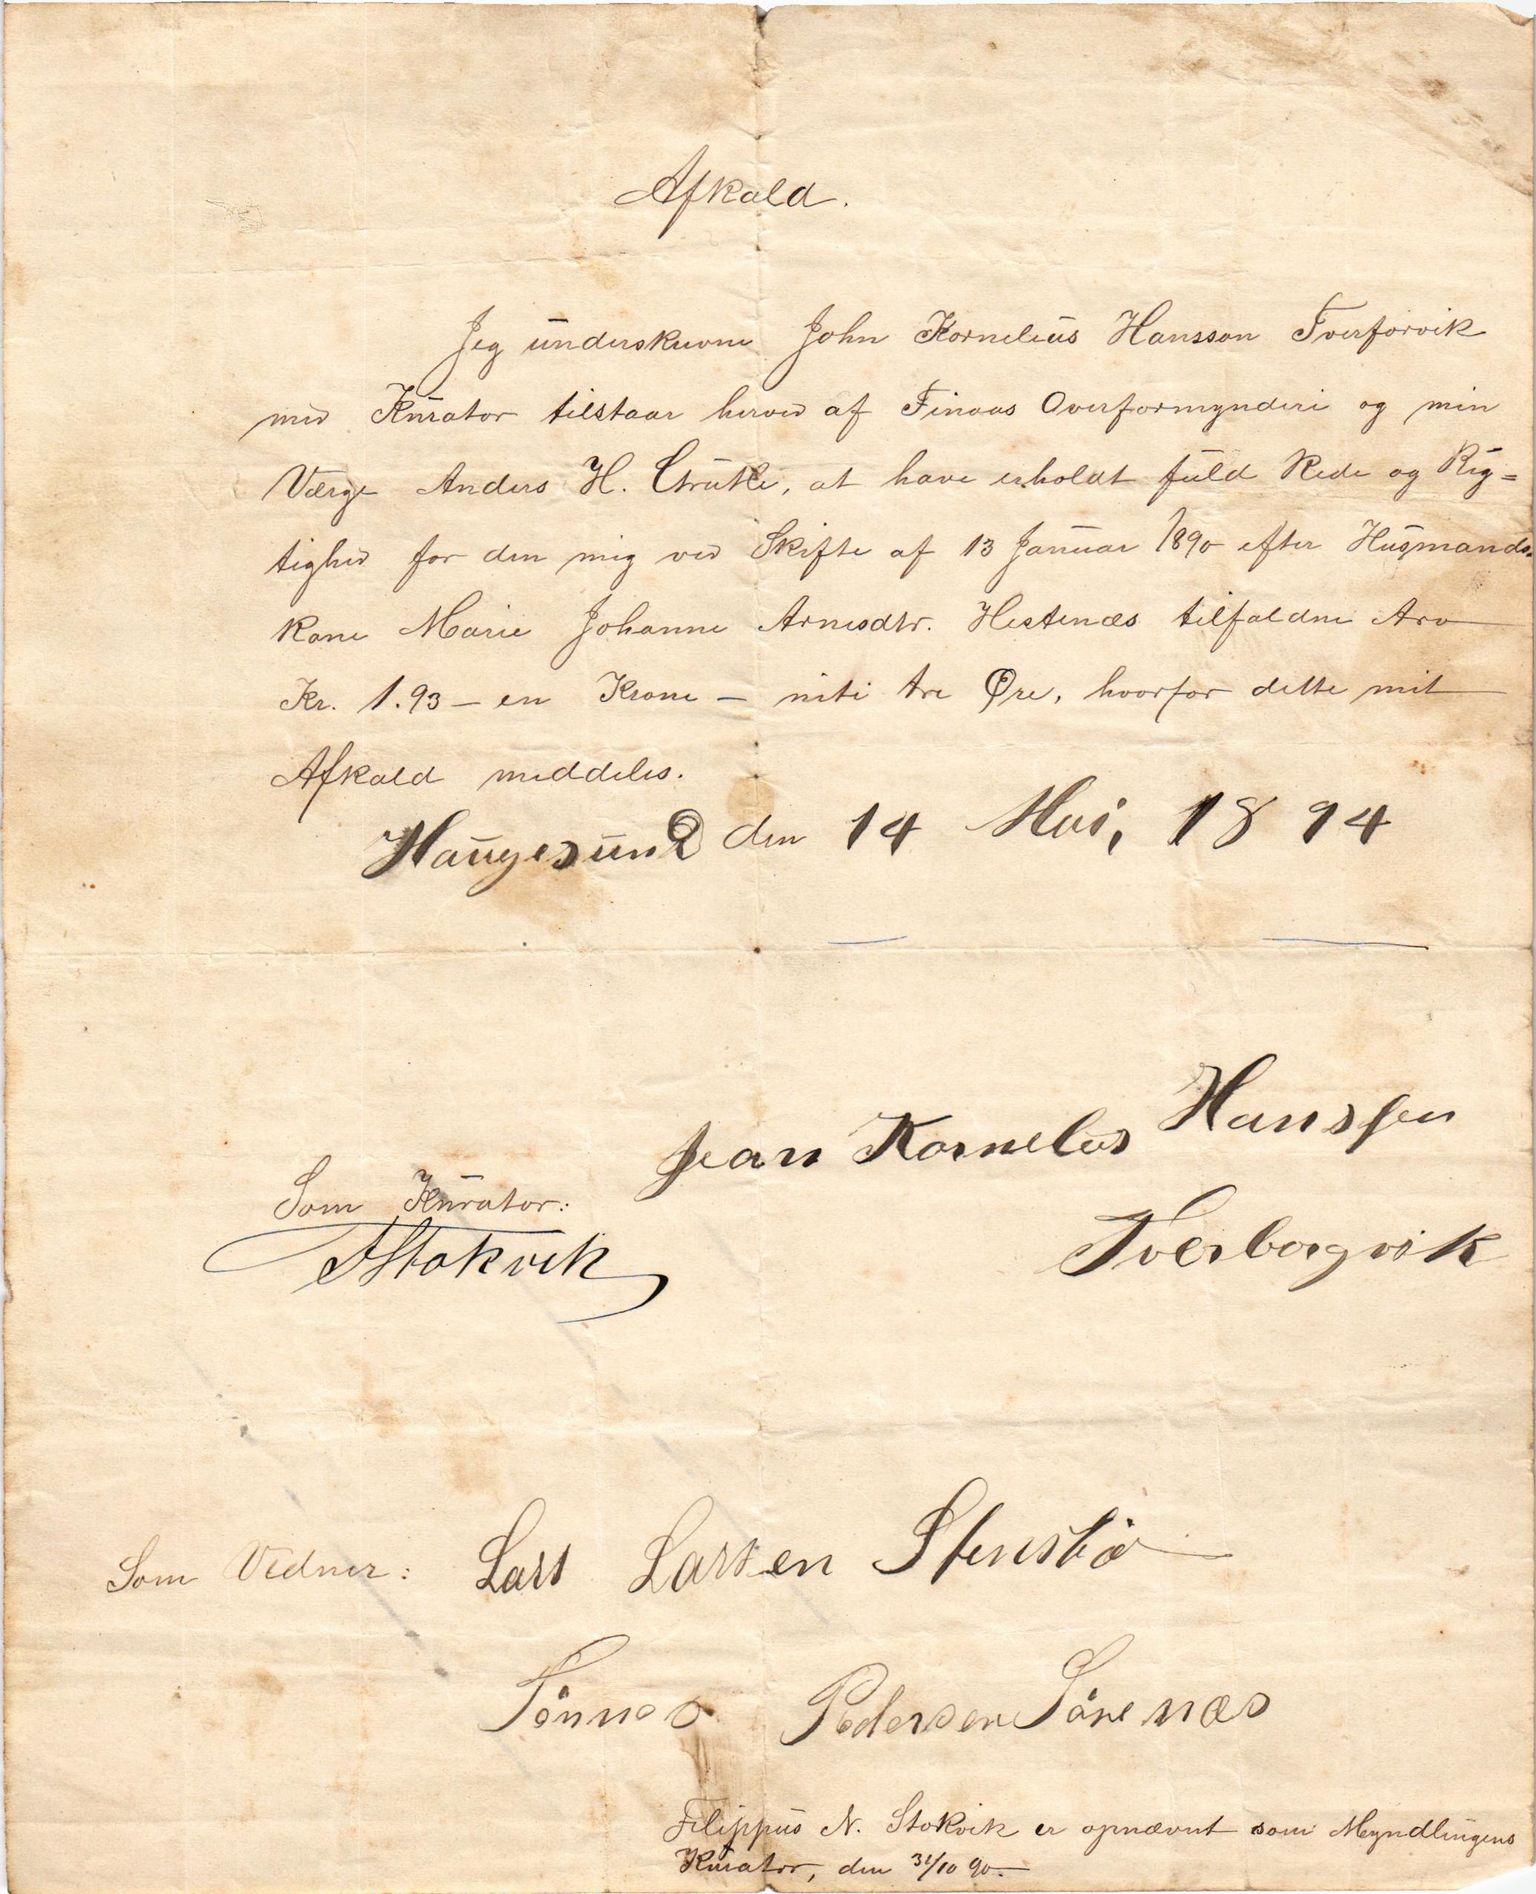 Afkald.
Jeg underskrevne John Kornelius Hansson Tverforvik
med Kurator tilstaar herved af Finaas Overformynderi og min
Værge Anders H. at have erholdt fuld Rede og Rig=
tighed for den mig ved Skifte af 13 Januar 1890 efter Husmands-
kone Marie Johanne Arnesdtr. Hestenæs tilfaldne Arv
Kr. 1.93 – en Krone – niti tre Øre, hvorfor dette mit
Afkald meddeles.
Haugesund den 14 Mai, 1894
Jean Kornelius Hanssen
Tverborgvik
Som Kurator:
FStokvik
Som Vidner: Lars Larsen Stensbø
Tönnes Pedersen Sörenæs
Filippus N. Stokvik er opnævnt som Myndlingens
Kurator, den 31/10 90.